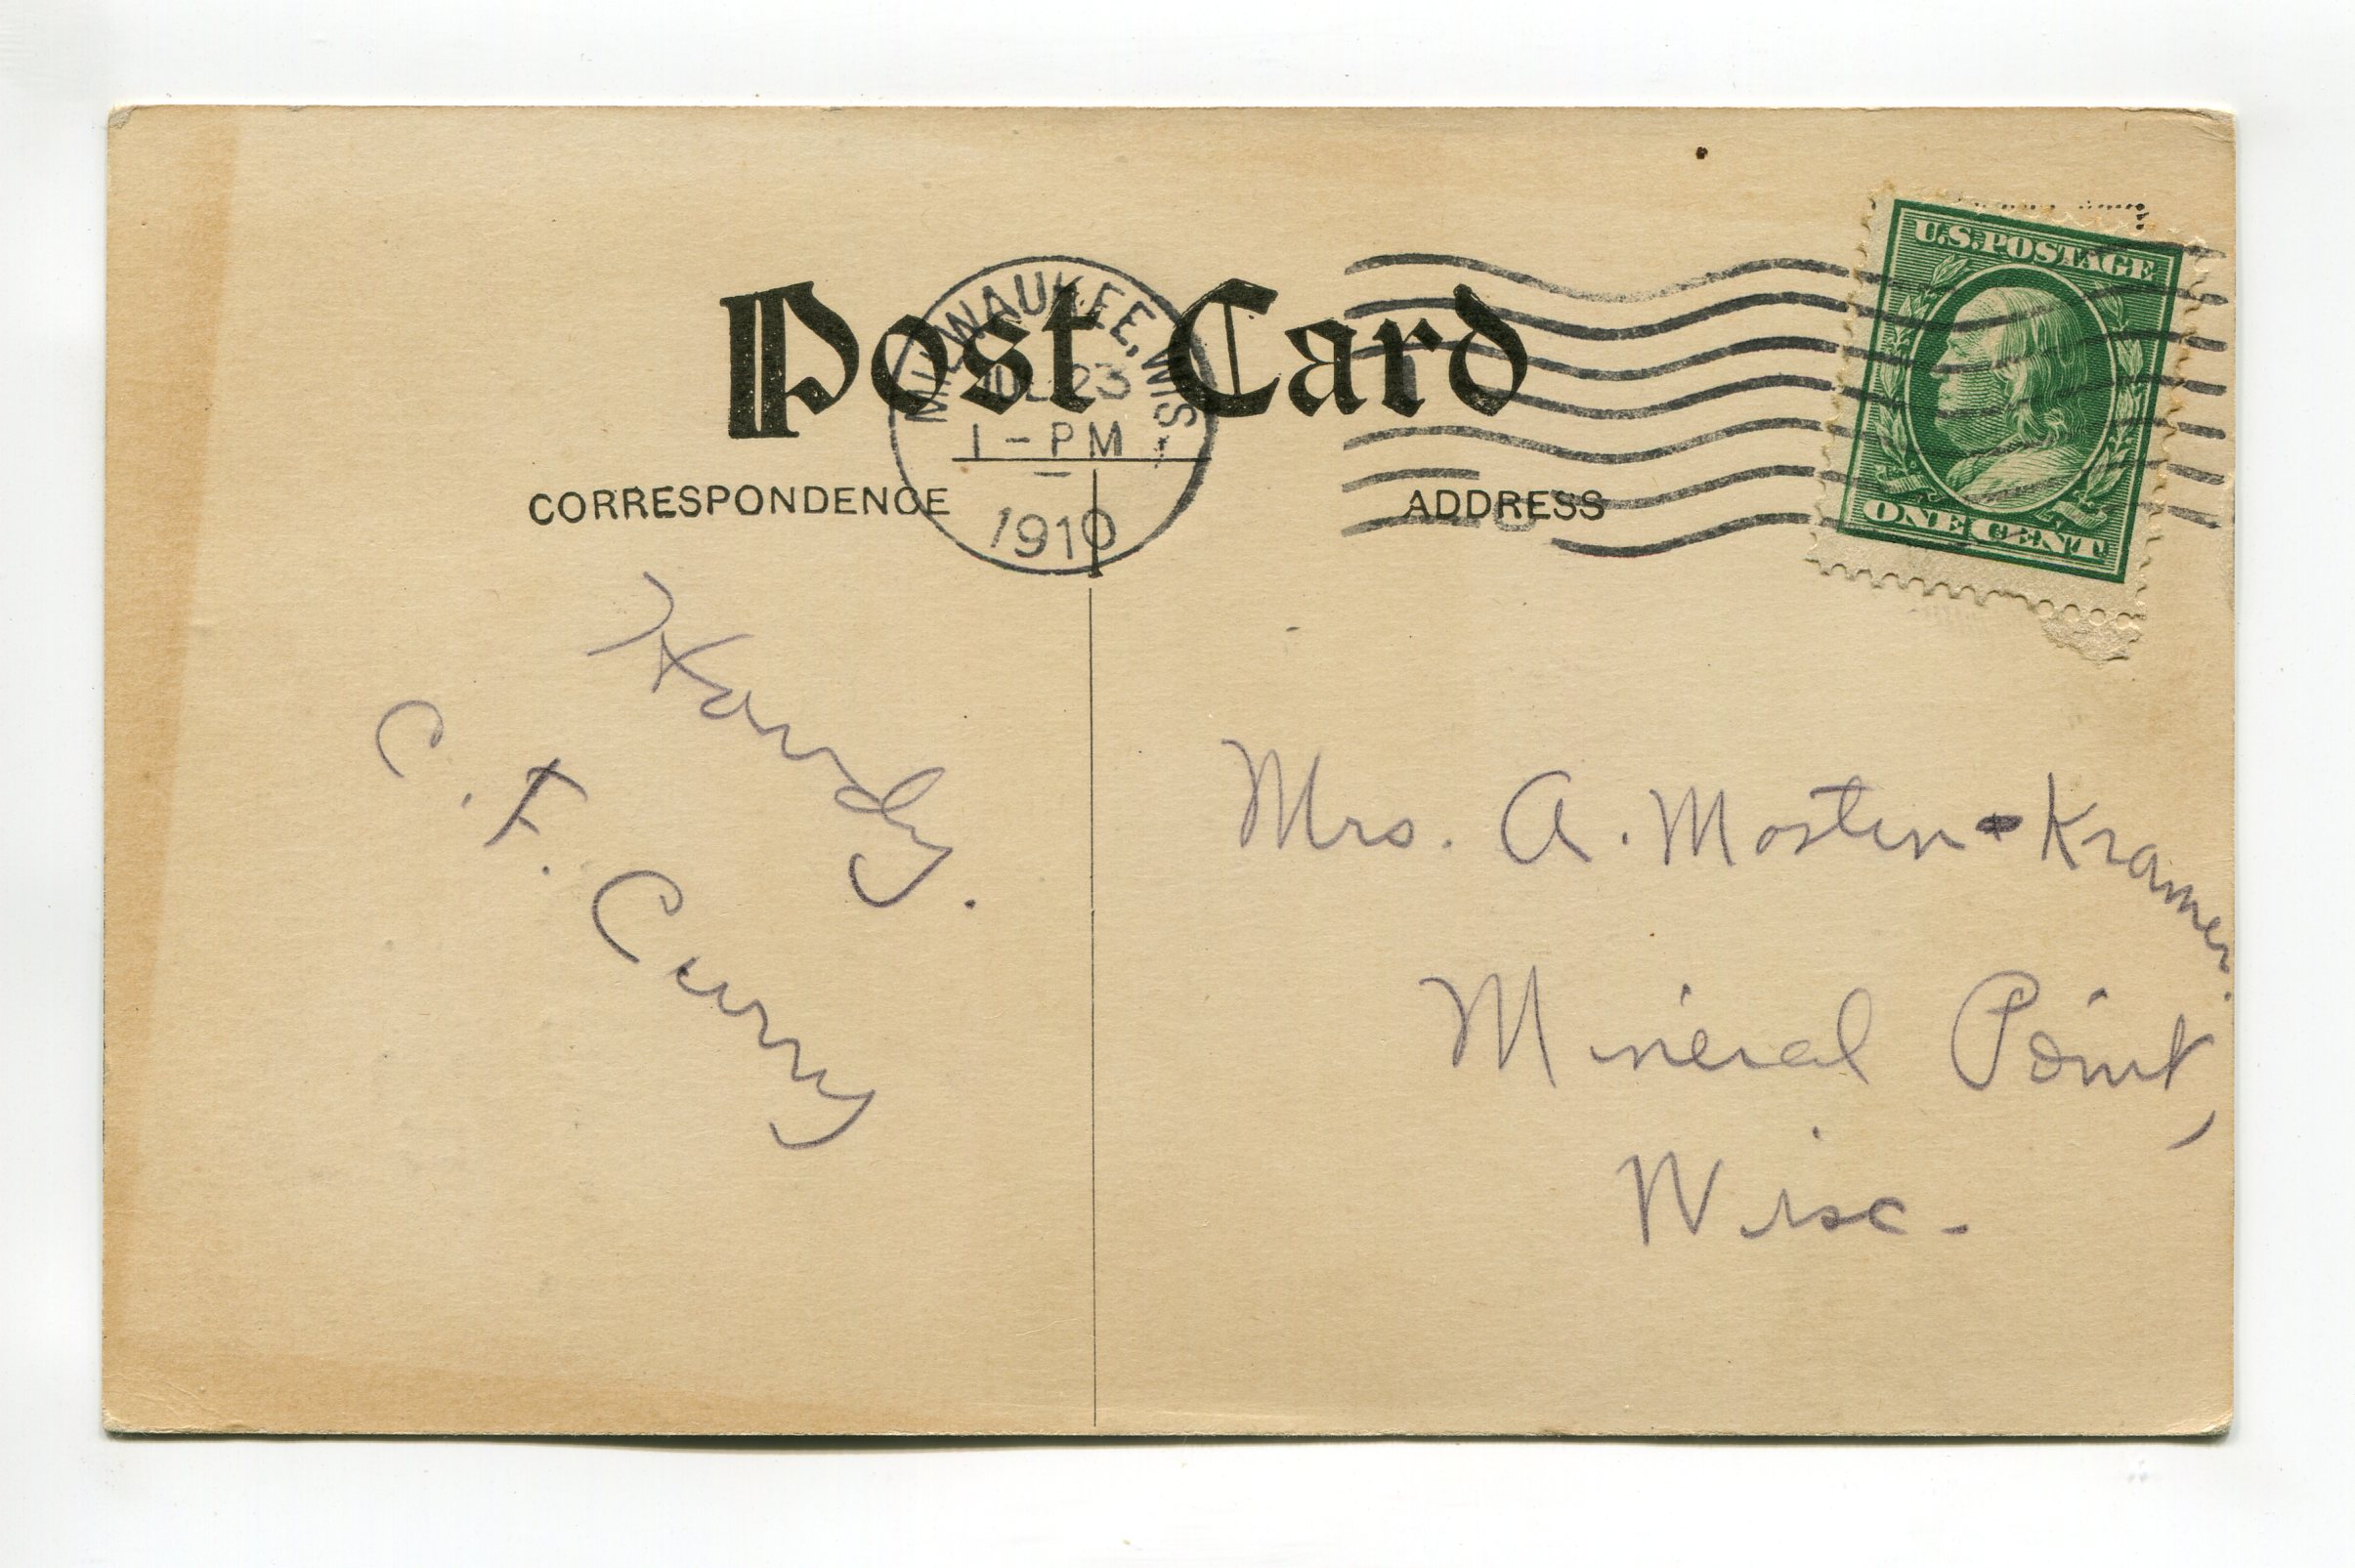 Post Card
MILWAUKEE, WIS.
JUL 23
1-PM
1910
U.S. POSTAGE
ONE CENT
CORRESPONDENCE
ADDRESS
Howdy.
C. F. Curry
Mrs. A. Mosten-Kramer.
Mineral Point,
Wisc-